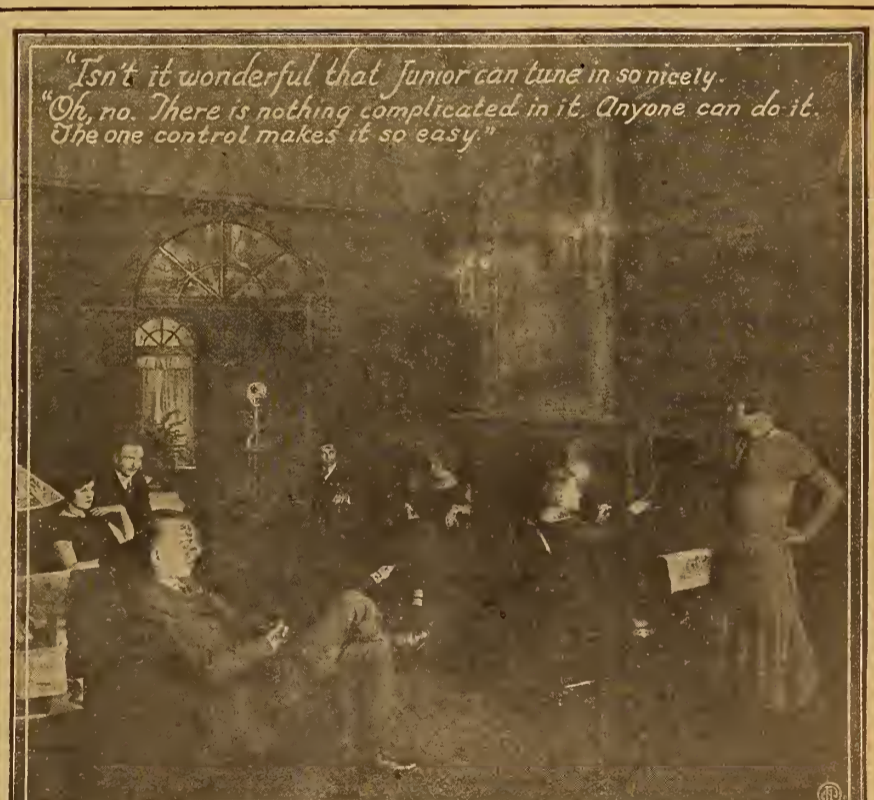 "Isn't it wonderful that Junior can tune in so nicely.
"Oh, no. There is nothing complicated in it. Anyone can do it.
The one control makes it so easy."